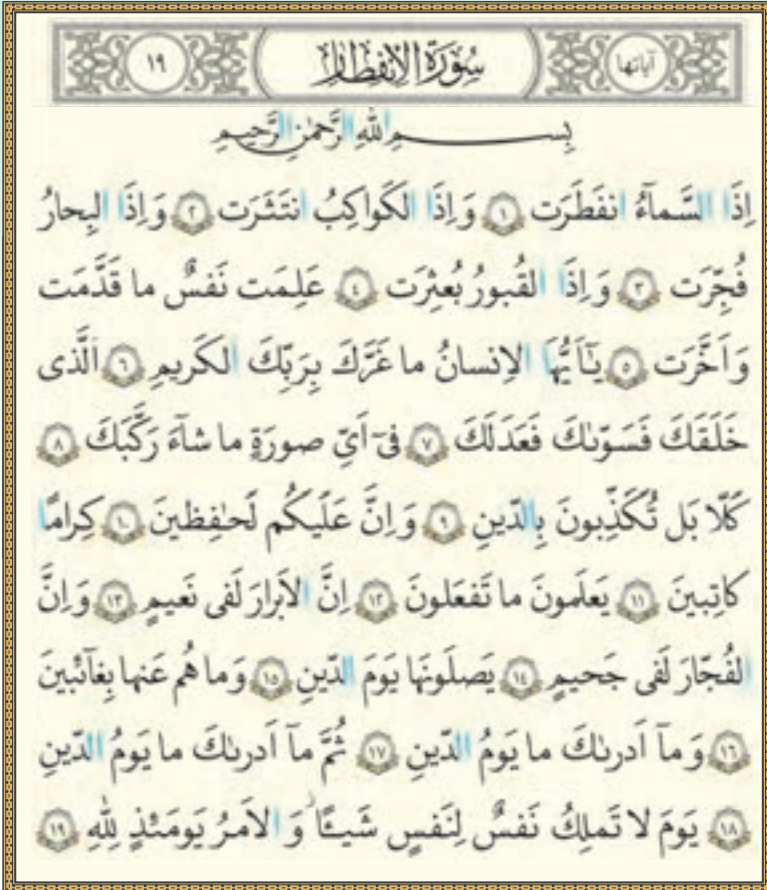 آياتها سُورَةُ الِانفِطَارِ ١٩
بِسمِ اللّٰهِ الرَّحمٰنِ الرَّحيمِ
اِذَا السَّمآءُ انفَطَرَت ١ وَ اِذَا الكَواكِبُ انتَثَرَت ٢ وَ اِذَا البِحارُ
فُجِّرَت ٣ وَ اِذَا القُبورُ بُعثِرَت ٤ عَلِمَت نَفسٌ ما قَدَّمَت
وَ اَخَّرَت ٥ يٰٓاَيُّهَا الاِنسانُ ما غَرَّكَ بِرَبِّكَ الكَريمِ ٦ اَلَّذى
خَلَقَكَ فَسَوّىٰكَ فَعَدَلَكَ ٧ فىٓ اَىِّ صورَةٍ ما شآءَ رَكَّبَكَ ٨
كَلّا بَل تُكَذِّبونَ بِالدّينِ ٩ وَ اِنَّ عَلَيكُم لَحٰفِظينَ ١٠ كِرامًا
كاتِبينَ ١١ يَعلَمونَ ما تَفعَلونَ ١٢ اِنَّ الاَبرارَ لَفى نَعيمٍ ١٣ وَ اِنَّ
الفُجّارَ لَفى جَحيمٍ ١٤ يَصلَونَها يَومَ الدّينِ ١٥ وَ ما هُم عَنها بِغآئِبينَ
١٦ وَ مآ اَدرىٰكَ ما يَومُ الدّينِ ١٧ ثُمَّ مآ اَدرىٰكَ ما يَومُ الدّينِ
١٨ يَومَ لا تَملِكُ نَفسٌ لِنَفسٍ شَيـًٔا ۖ وَ الاَمرُ يَومَئِذٍ لِلّٰهِ ١٩